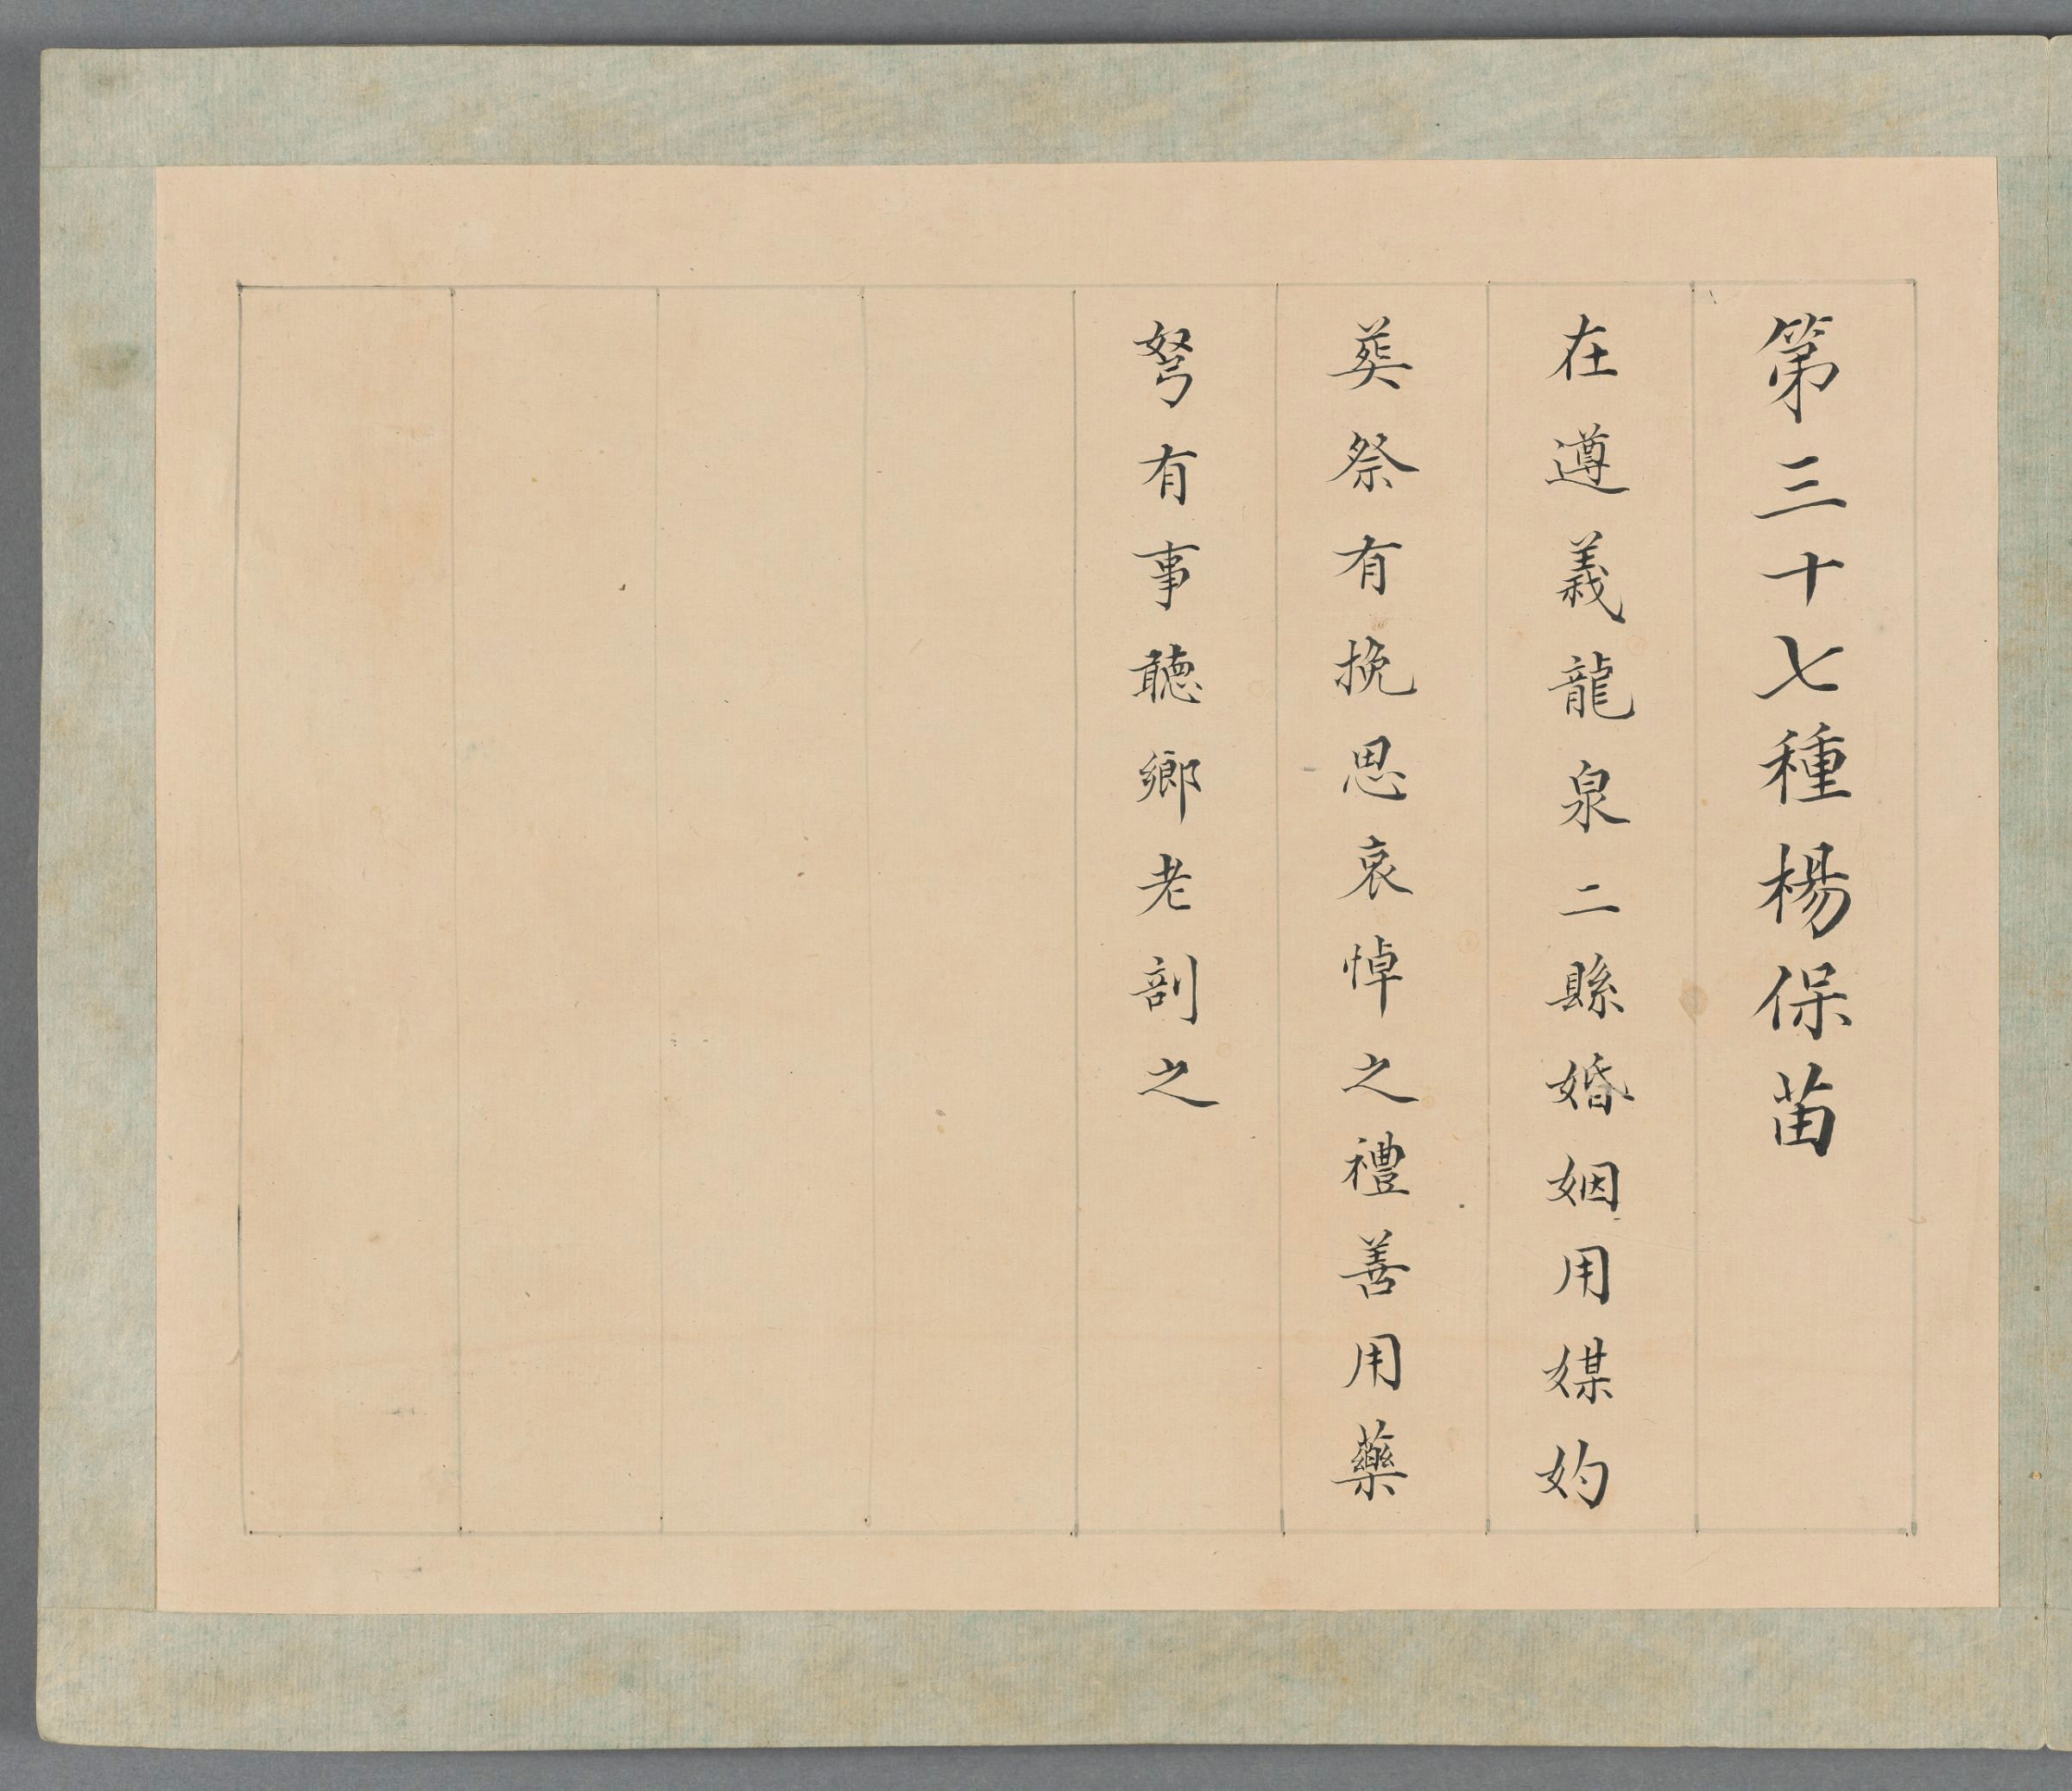 第三十七種楊保苗
在遵義龍泉二縣婚姻用媒妁
葬祭有挽思哀悼之禮善用藥
弩有事聽鄉老剖之